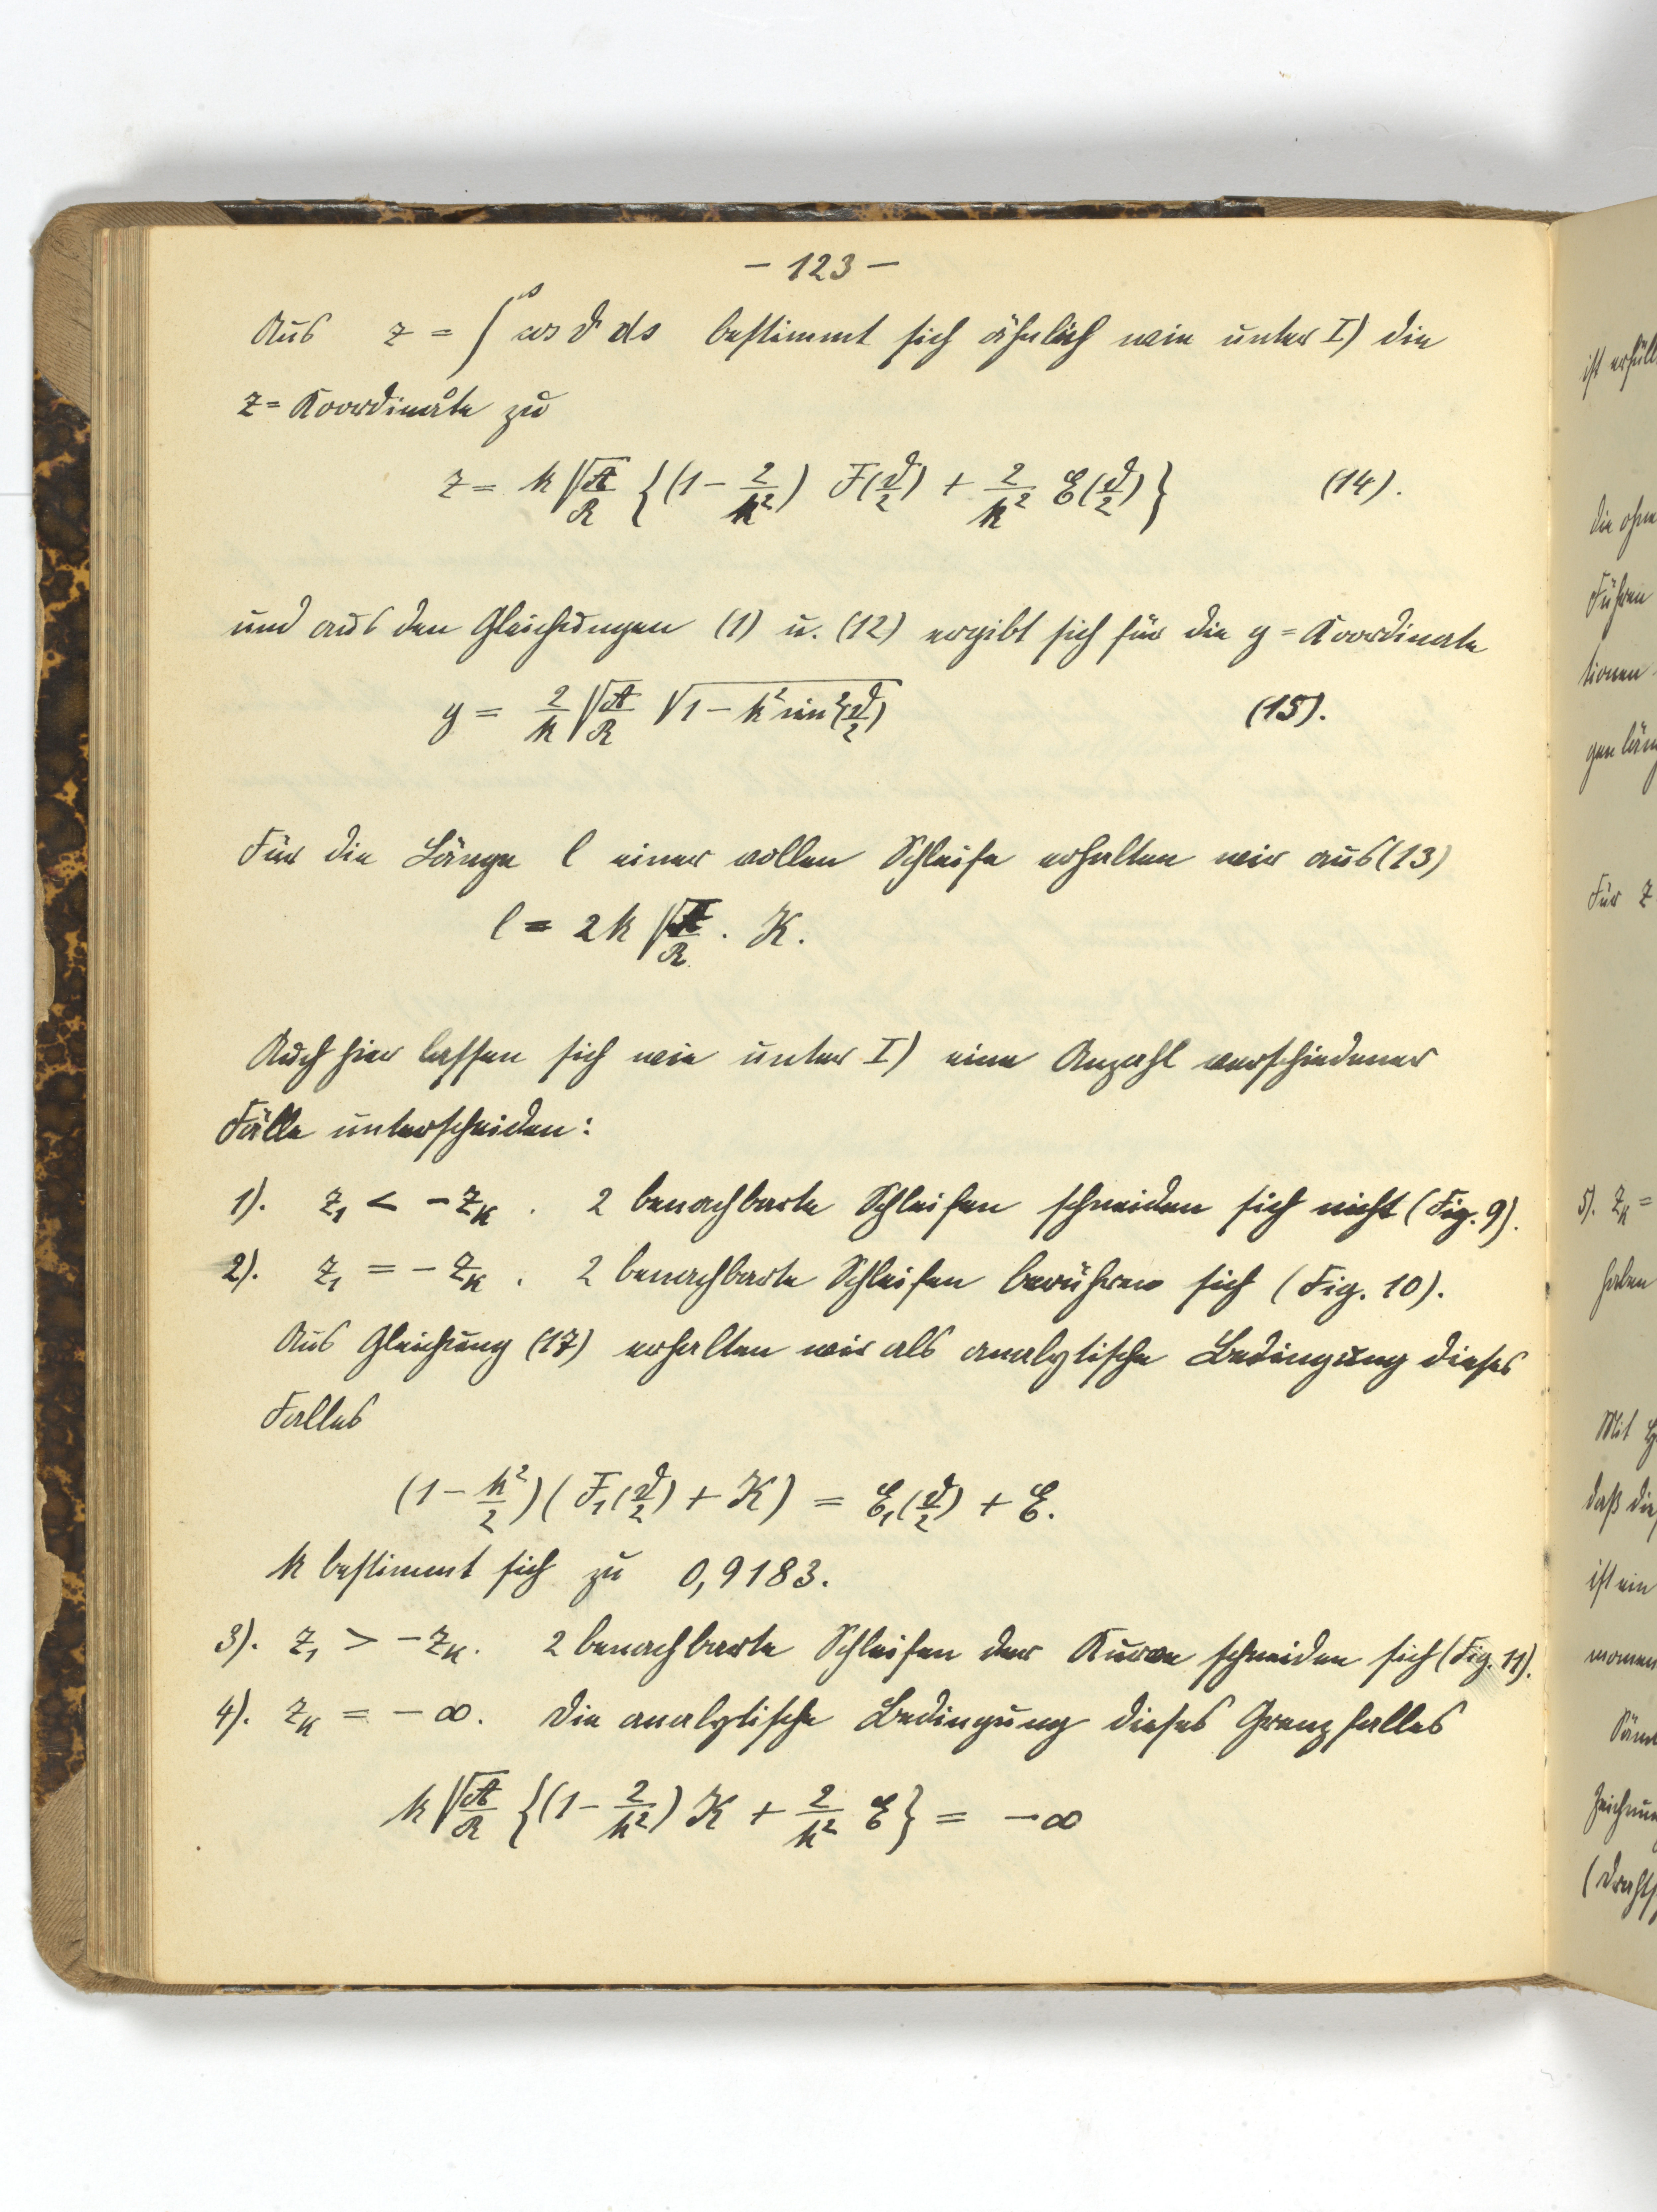 – 123 –
Aus z = ∫ˢ cos ϑ ds bestimmt sich ähnlich wie unter I) die
z=Koordinate zu
z = k √(A/R) {(1 − 2/k²) F(ϑ/2) + 2/k² E(ϑ/2)} (14).
und aus den Gleichungen (1) u. (12) ergibt sich für die y=Koordinate
y = 2/k √(A/R) √(1 − k² sin²(ϑ/2)) (15).
Für die Länge l einer vollen Schleife erhalten wir aus (13)
l = 2k √(A/R) · K.
Auch hier lassen sich wie unter I) eine Anzahl verschiedener
Fälle unterscheiden:
1). z₁ < − z_K . 2 benachbarte Schleifen schneiden sich nicht (Fig. 9).
2). z₁ = − z_K . 2 benachbarte Schleifen berühren sich (Fig. 10).
Aus Gleichung (17) erhalten wir als analytische Bedingung dieses
Falles
(1 − k²/2)(F₁(ϑ/2) + K) = E₁(ϑ/2) + E.
k bestimmt sich zu 0,9183.
3). z₁ > − z_K. 2 benachbarte Schleifen der Kurve schneiden sich (Fig. 11).
4). z_K = − ∞. Die analytische Bedingung dieses Grenzfalles
k √(A/R) {(1 − 2/k²) K + 2/k² E} = − ∞
ist
die ohne
Führen
tionen
Für z
5). z_K =
haben
Mit
daß
ist ein